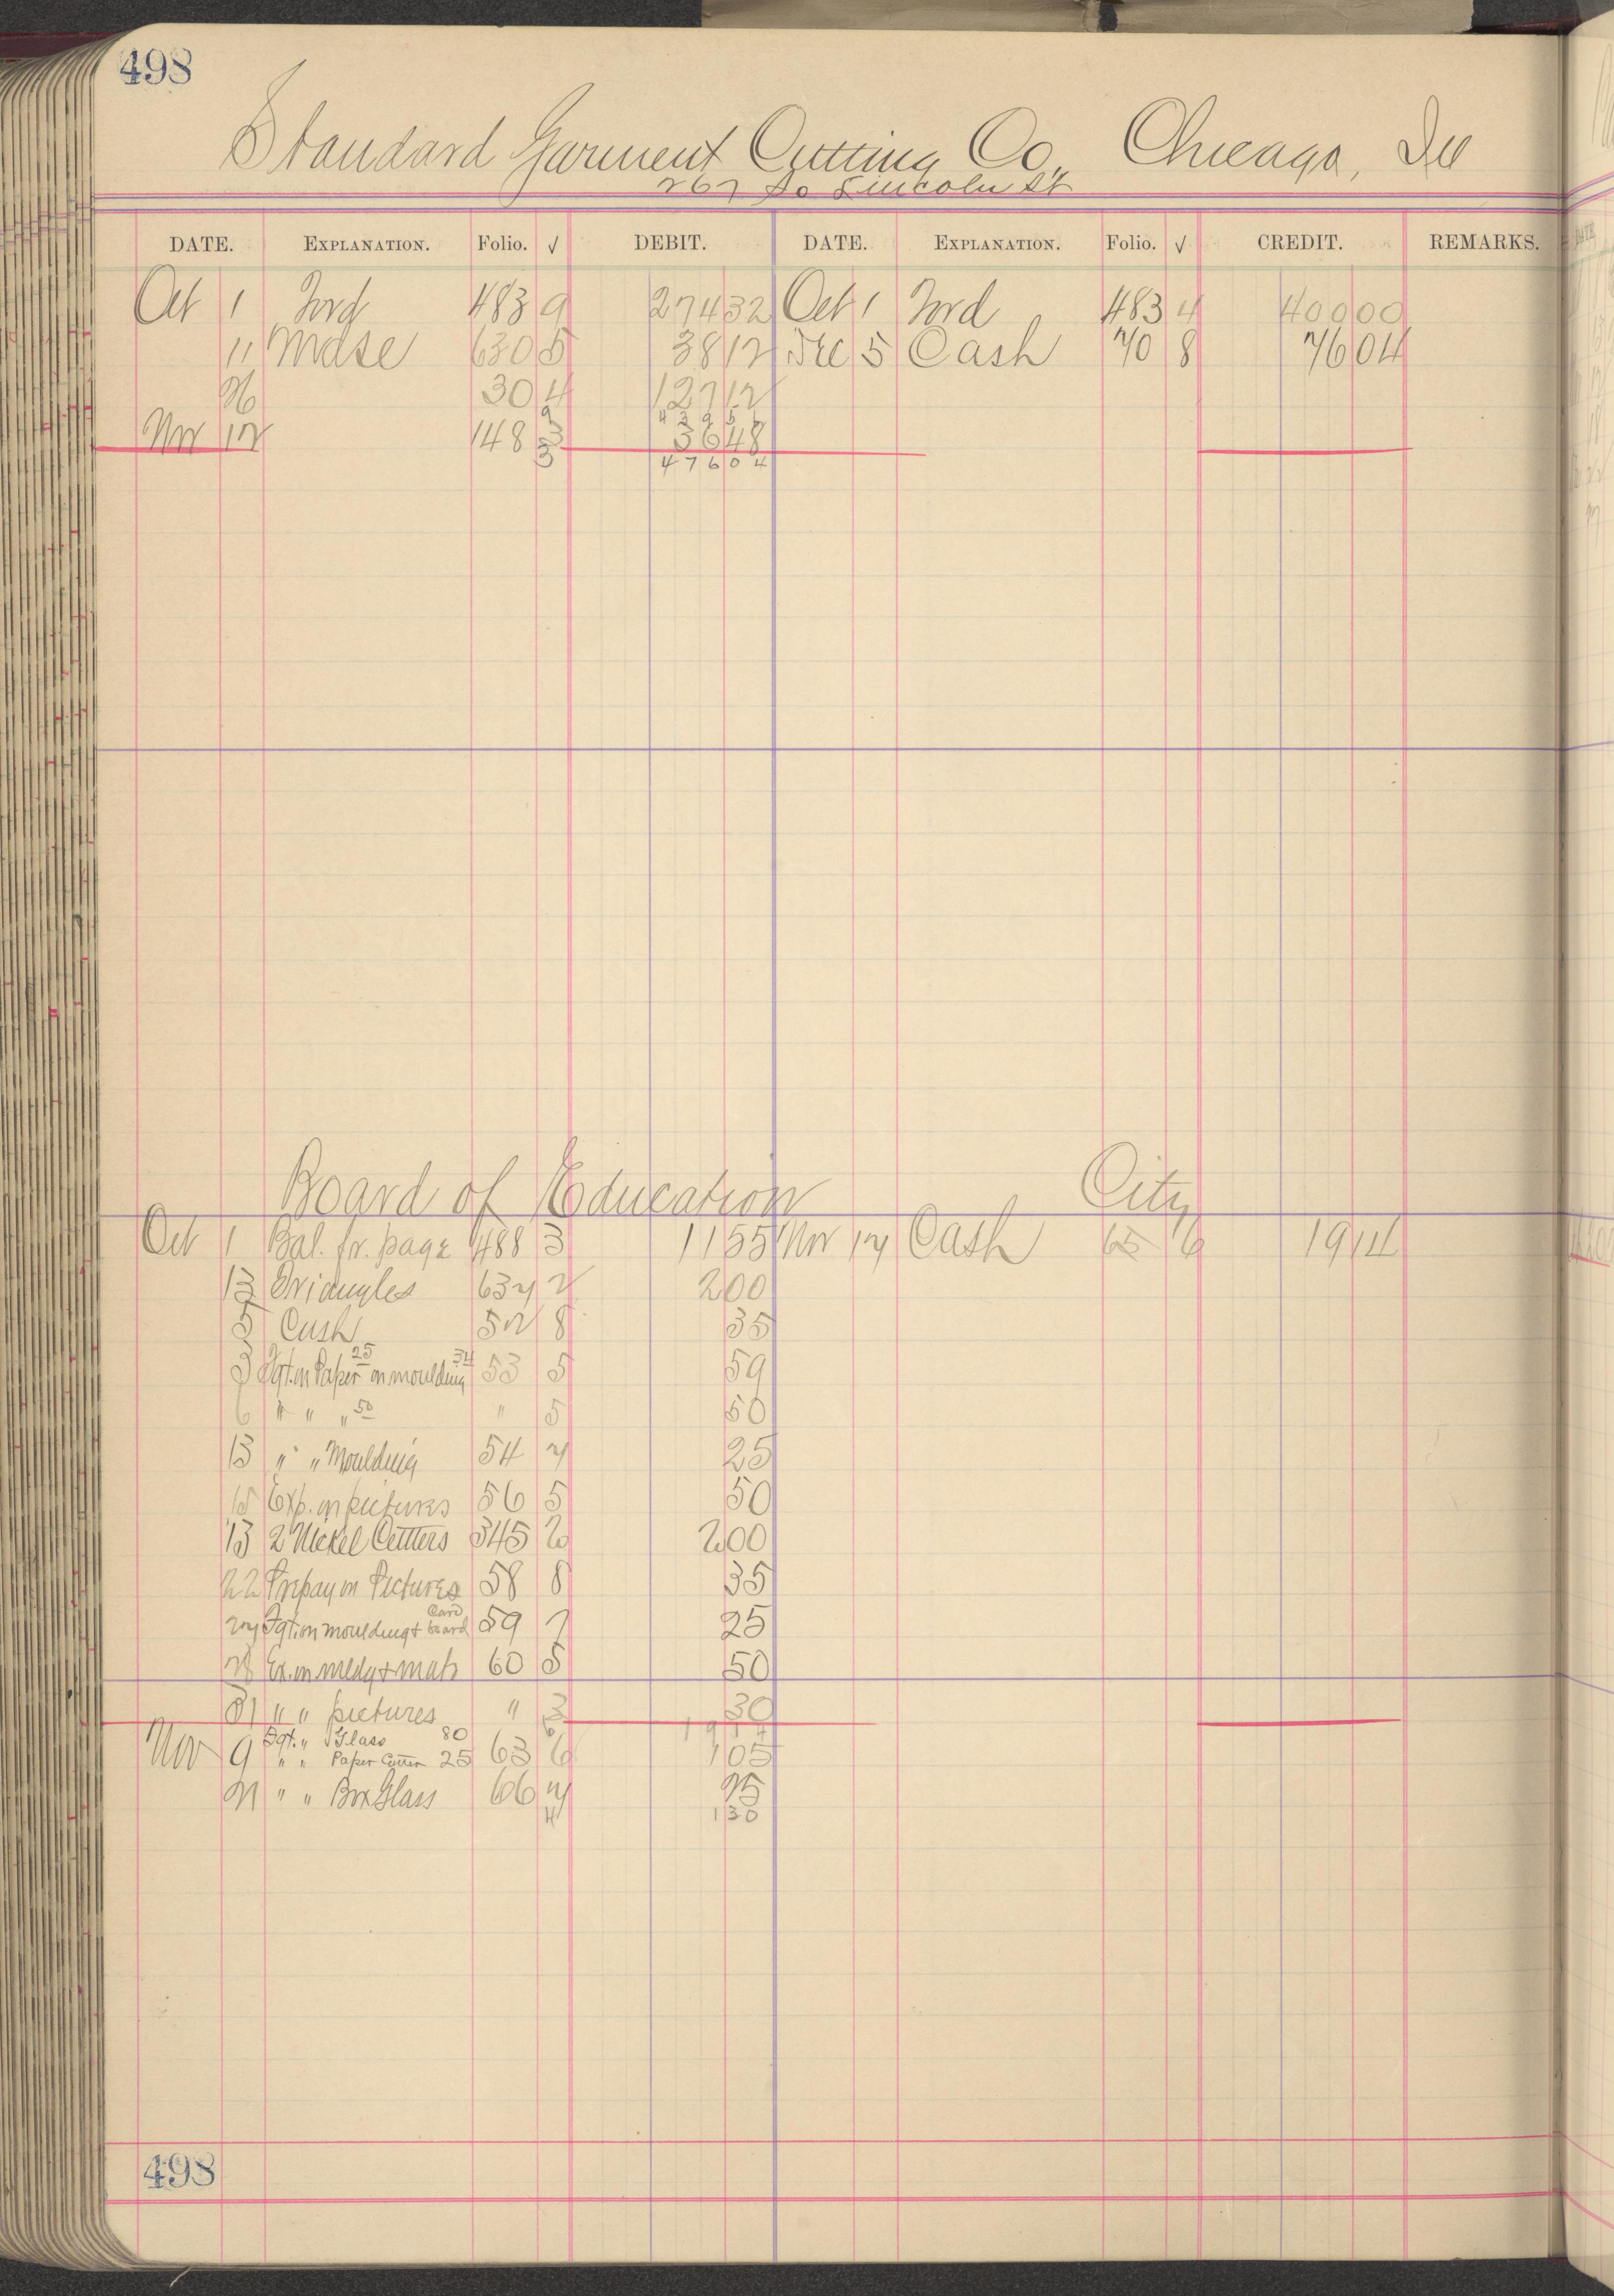 498
Standard Garment Cutting Co. Chicago, Ill
267 So Lincoln St
DATE. EXPLANATION. Folio. √ DEBIT. DATE. EXPLANATION. Folio. √ CREDIT. REMARKS.
Oct 1 Ford 483 9 274 32 Oct 1 Ford 483 4 400 00
11 Mdse 630 5 38 12 Dec 5 Cash 70 8 76 04
26 30 4 127 12
439 56
Nov 12 148 3 36 48
476 04
Board of Education City
Oct 1 Bal. fr. page 488 3 11 55 Nov 14 Cash 65 6 19 14
13 Triangles 634 2 2 00
5 Cush 52 8 35
3 Fgt. on Paper 25 on moulding 34 53 5 59
6 " " " 50 " 5 50
13 " " Moulding 54 4 25
15 Exp. on pictures 56 5 50
13 2 Nickel Cutters 345 2 2 00
22 Prepay on Pictures 58 8 35
24 Fgt on moulding + Card board 59 7 25
28 Ex. on mldg + mats 60 5 50
31 " " pictures " 3 30
19 14
Nov 9 Fgt. " Glass 80
" " Paper Cutter 25 63 6 1 05
21 " " Box Glass 66 4 25
4 1 30
498